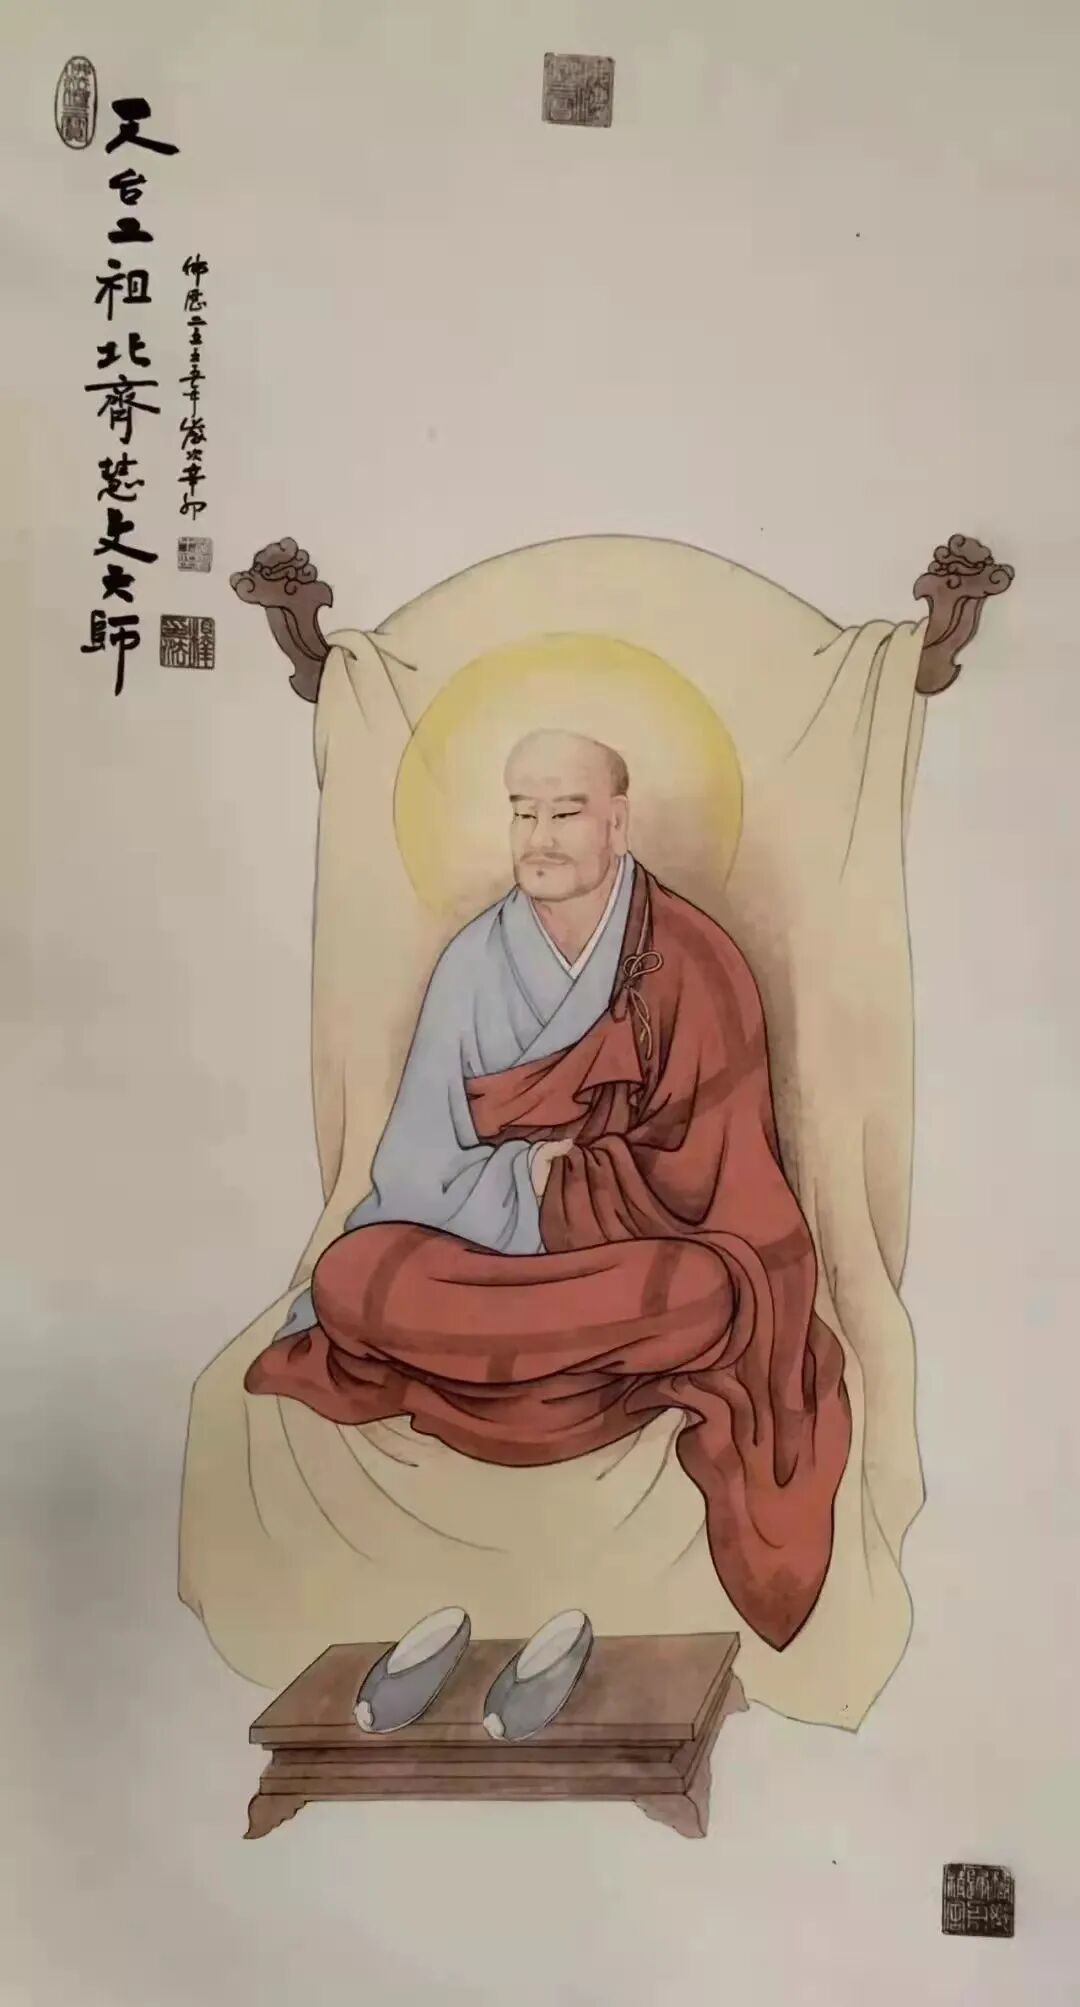 天台二祖北齊慧文大師
佛歷二五五五年歲次辛卯